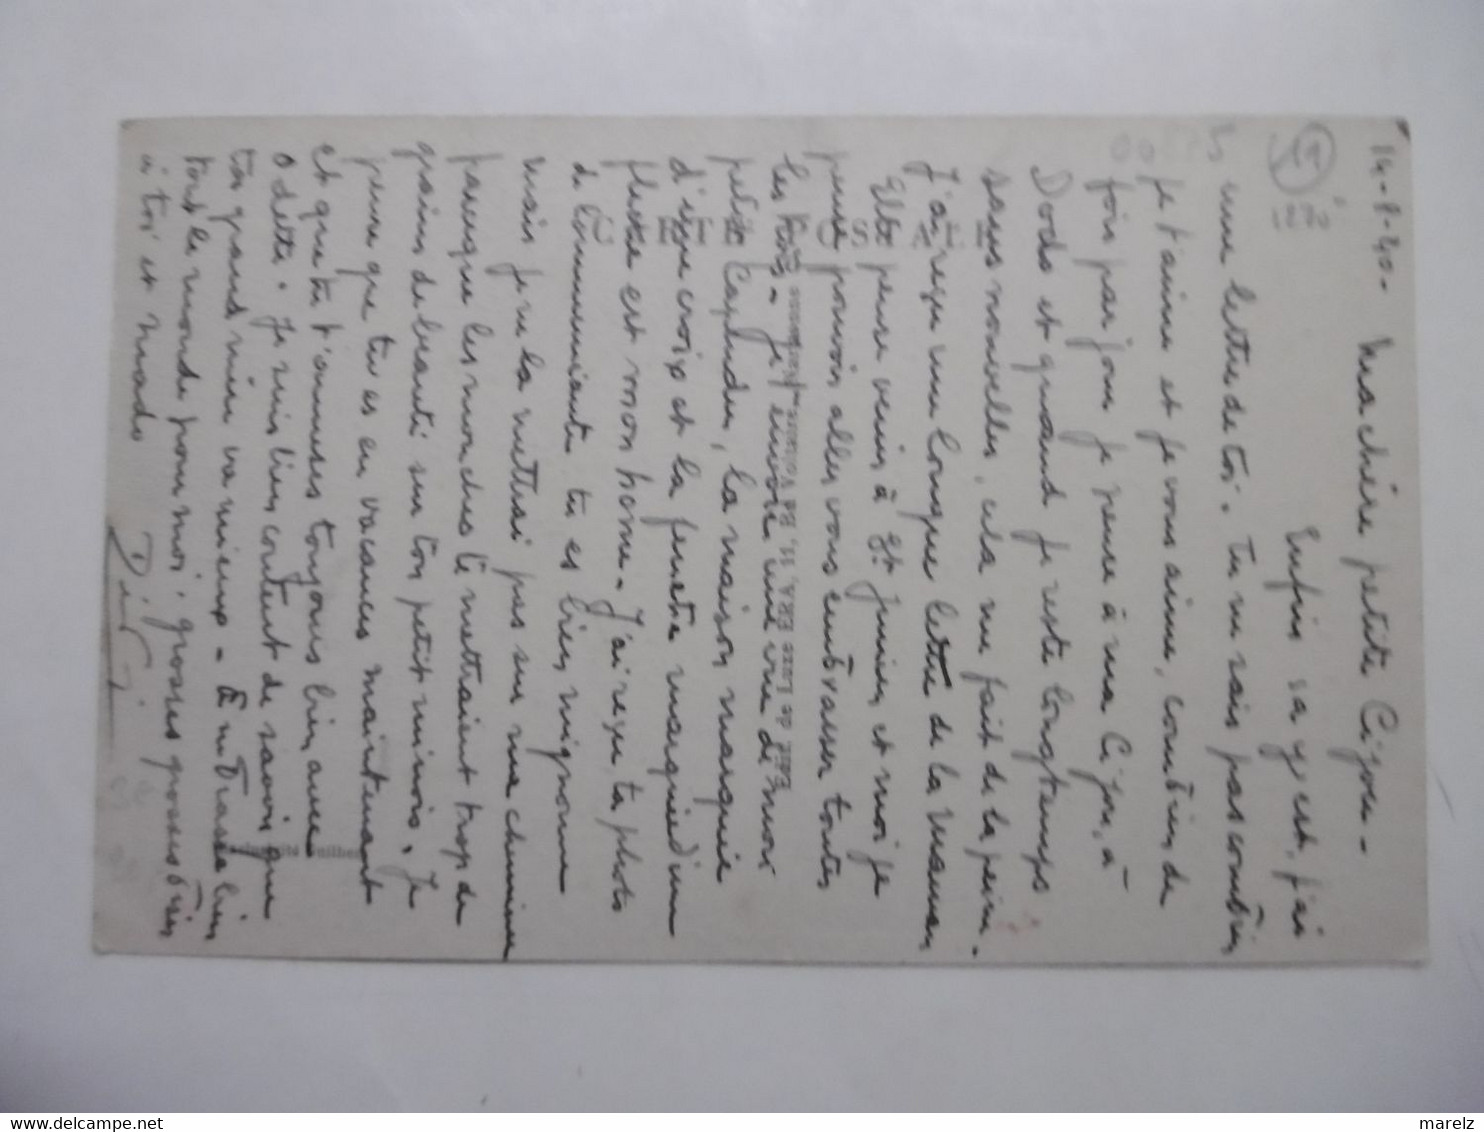 14-8-40. Ma chère petite Cijou -
Enfin sa y est, j'ai
une lettre de toi. Tu ne sais pas combien
je t'aime et je vous aime, combien de
fois par jour je pense à ma Cijou, à
Dodo et quand je reste longtemps
sans nouvelles, cela me fait de la peine.
J'ai reçu une longue lettre de la Maman
Elle pense venir à St Junien et moi je
pense pouvoir aller vous embrasser toutes
les trois - Je t'envoie une vue de mon
pelo Capendu, la maison marquée
d'une croix et la fenêtre marquée d'une
flèche est mon home - J'ai reçu ta photo
de communiante tu es bien mignonne
mais je ne la mettrai pas sur ma cheminée
parceque les mouches te mettraient trop de
grains de beauté sur ton petit minois. Je
pense que tu es en vacances maintenant
et que tu t'amuses toujours bien avec
Odette. Je suis bien content de savoir que
ton grand mien va mieux - Embrasse bien
tout le monde pour moi. grosses grosses bien
à toi et nado
CARTE POSTALE
Édit de Luxe ESKA, 51, Rd Voltaire,
19
1270
00 75
marelz